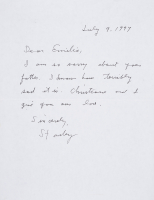 July 9, 1997
Dear Emilio,
I am so sorry about your
father. I know how terribly
sad it is. Christiane and I
give you our love.
Sincerely,
Stanley